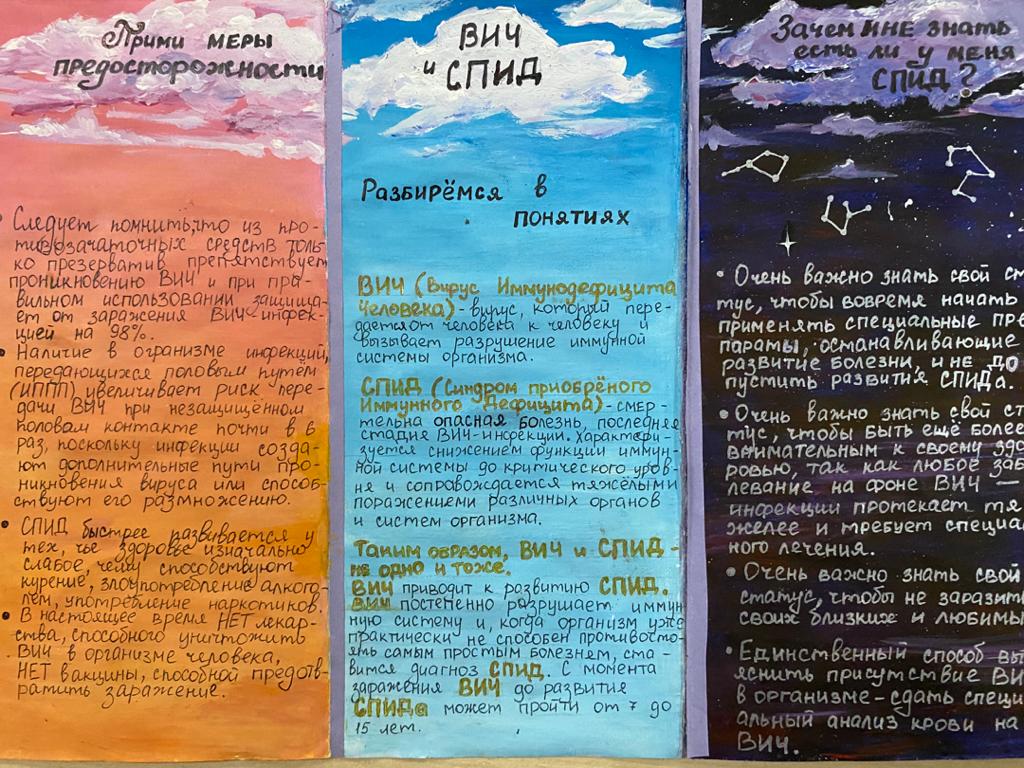 Прими меры
предосторожности
• Следует помнить, что из про-
тивозачаточных средств толь-
ко презерватив препятствует
проникновению ВИЧ и при пра-
вильном использовании защища-
ет от заражения ВИЧ-инфек-
цией на 98%.
• Наличие в огранизме инфекций,
передающихся половым путём
(ИППП) увеличивает риск пере-
дачи ВИЧ при незащищённом
половом контакте почти в 6
раз, поскольку инфекции созда-
ют дополнительные пути про-
никновения вируса или способ-
ствуют его размножению.
• СПИД быстрее развивается у
тех, чье здоровье изначально
слабое, чему способствуют
курение, злоупотребление алкого-
лем, употребление наркотиков.
• В настоящее время НЕТ лекар-
ства, способного уничтожить
ВИЧ в организме человека,
НЕТ вакцины, способной предотв-
ратить заражение.
ВИЧ
и СПИД
Разбирёмся в
понятиях
ВИЧ (Вирус Иммунодефицита
Человека) - вирус, который пере-
даётся от человека к человеку и
вызывает разрушение иммунной
системы организма.
СПИД (Синдром приобрёного
Иммунного Дефицита) - смер-
тельно опасная болезнь, последняя
стадия ВИЧ-инфекции. Характери-
зуется снижением функции иммун-
ной системы до критического уров-
ня и сопровождается тяжёлыми
поражениеми различных органов
и систем организма.
Таким образом, ВИЧ и СПИД -
не одно и тоже.
ВИЧ приводит к развитию СПИД.
ВИЧ постепенно разрушает иммун-
ную систему и, когда организм уже
практически не способен противосто-
ять самым простым болезнем, ста-
вится диагноз СПИД. С момента
заражения ВИЧ до развития
СПИДа может пройти от 7 до
15 лет.
Зачем МНЕ знать
есть ли у меня
СПИД?
• Очень важно знать свой ста
тус, чтобы вовремя начать
применять специальные пре
параты, останавливающие
развитие болезни, и не до
пустить развития СПИДа.
• Очень важно знать свой ст
тус, чтобы быть ещё более
внимательным к своему здо
ровью, так как любое заб
левание на фоне ВИЧ —
инфекции протекает тя
желее и требует специа
ного лечения.
• Очень важно знать свой
статус, чтобы не заразит
своих близких и любимы
• Единственный способ вы
яснить присутствие ВИ
в организме - сдать специ
альный анализ крови на
ВИЧ.